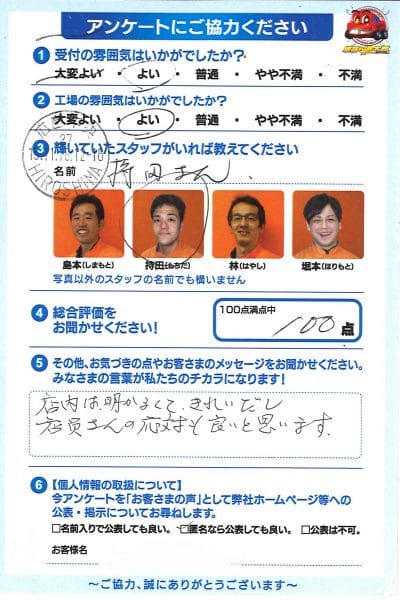 アンケートにご協力ください
1 受付の雰囲気はいかがでしたか?
大変よい ・ よい ・ 普通 ・ やや不満 ・ 不満
2 工場の雰囲気はいかがでしたか?
大変よい ・ よい ・ 普通 ・ やや不満 ・ 不満
3 輝いていたスタッフがいれば教えてください
名前 持田さん
HIROSHIMA
島本(しまもと) 持田(もちだ) 林(はやし) 堀本(ほりもと)
写真以外のスタッフの名前でも構いません
4 総合評価を
お聞かせください!
100点満点中
100点
5 その他、お気づきの点やお客さまのメッセージをお聞かせください。
みなさまの言葉が私たちのチカラになります!
店内は、明かるくて、きれいだし
店員さんの応対も良いと思います。
6 【個人情報の取扱について】
今アンケートを「お客さまの声」として弊社ホームページ等への
公表・掲示についてお尋ねします。
□名前入りで公表しても良い。 □匿名なら公表しても良い。 □公表は不可。
お客様名
〜ご協力、誠にありがとうございます〜